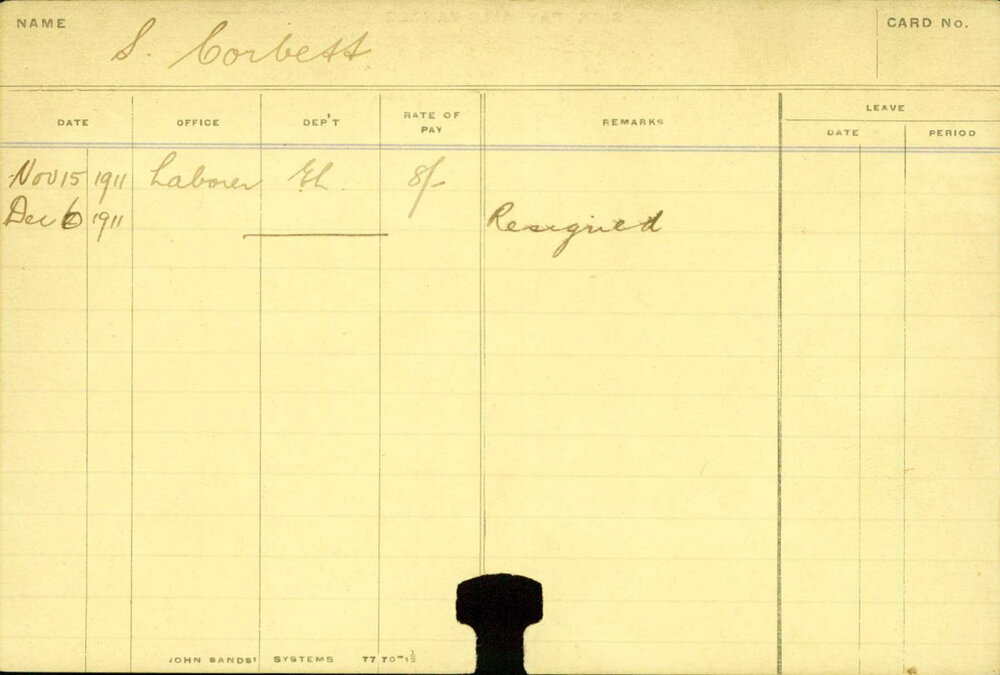 NAME S. Corbett CARD No.
DATE OFFICE DEP'T RATE OF PAY REMARKS LEAVE
DATE PERIOD
Nov 15 1911 Laborer EL. 8/-
Dec 6 1911 Resigned
JOHN SANDS' SYSTEMS 7770-1½